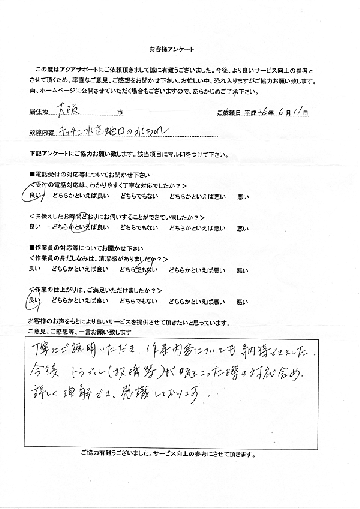 お客様アンケート
この度はアクアサポートにご依頼頂きまして誠に有難うございました。今後、より良いサービス向上の参考と
させて頂くため、率直なご意見、ご感想をお聞かせ下さい。お忙しい中、恐れ入りますがご協力お願い致します。
尚、ホームページに公開させていただく場合もございますので、あらかじめご了承下さい。
様
平成 26年 6月
下記アンケートにご協力お願い致します。該当項目に○印をつけて下さい。
■電話受付の対応等についてお聞かせ下さい
<受付の電話対応は、わかりやすく丁寧な対応でしたか?>
良い どちらかといえば良い どちらでもない どちらかといえば悪い 悪い
<お伺いしたお時間どおりにお伺いすることができていましたか?>
良い どちらかといえば良い どちらでもない どちらかといえば悪い 悪い
■作業員の対応等についてお聞かせ下さい
<作業員の身だしなみは、清潔感がありましたか?>
良い どちらかといえば良い どちらでもない どちらかといえば悪い 悪い
<作業の仕上がりは、ご満足いただけましたか?>
良い どちらかといえば良い どちらでもない どちらかといえば悪い 悪い
お客様のお声をもとにより良いサービスを提供させて頂きたいと思っています。
ご意見、ご感想等、一言お願い致します
丁寧にご説明いただき 作業内容についても納得できました。
今後 トラブル(故障等)が起こった際の対処も含め、
詳しく理解でき、感謝しております。
ご協力有難うございました。サービス向上の参考にさせて頂きます。